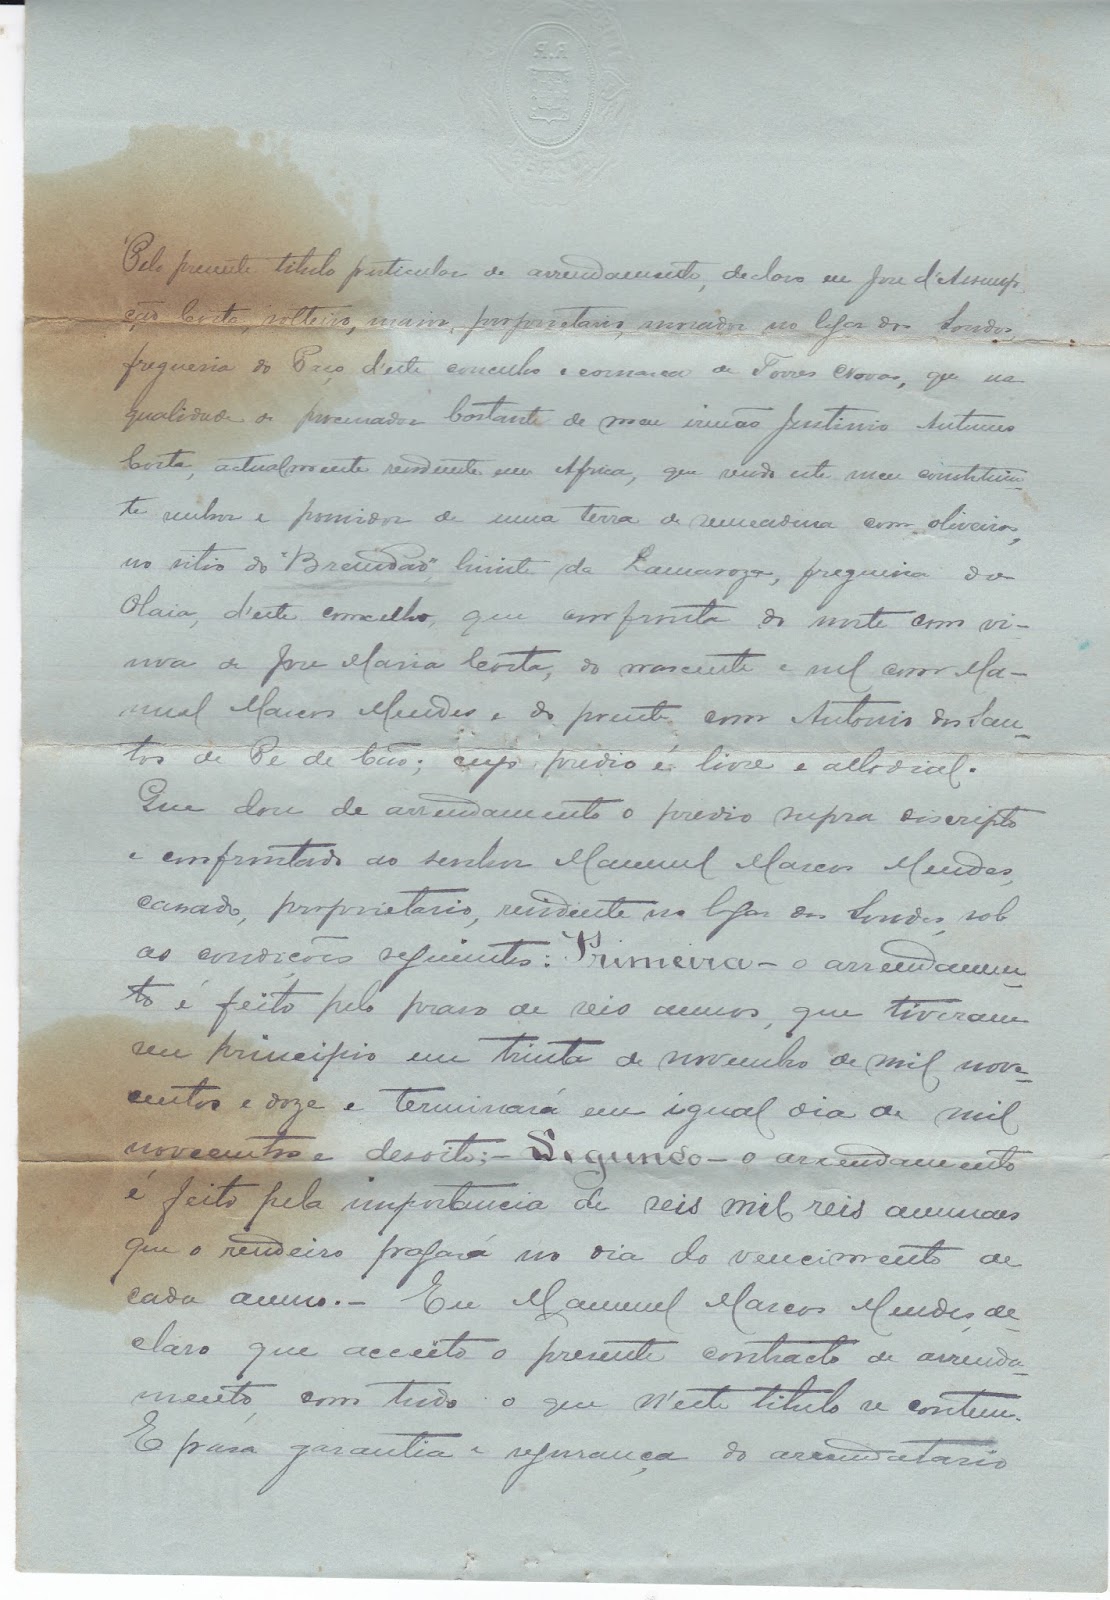 Pelo presente titulo particular de arrendamento, declaro eu José d'Assump-
ção Costa, solteiro, maior, proprietario, morador no logar dos Soudos,
freguesia do Paço, d'este concelho e comarca de Torres Novas, que na
qualidade de procurador bastante de meu irmão Justinio Antunes
Costa, actualmente residente em Africa, que sendo este meu constituin-
te senhor e possuidor de uma terra de semeadura com oliveiras,
no sitio do "Brandão", limite da Lamaroza, freguesia da
Olaia, d'este concelho, que confronta do norte com vi-
uva de José Maria Costa, do nascente e sul com Ma-
nuel Marcos Mendes e do poente com Antonio dos San-
tos de Pé de Cão; cujo predio é livre e allodial.
Que dou de arrendamento o predio supra discripto
e confrontado ao senhor Manuel Marcos Mendes,
casado, proprietario, residente no logar dos Soudos, sob
as condições seguintes: Primeira - o arrendamen-
to é feito pelo praso de seis annos, que tiveram
seu principio em trinta de novembro de mil nove-
centos e doze e terminará em igual dia de mil
novecentos e desoito; - Segundo - o arrendamento
é feito pela importancia de seis mil reis annuaes
que o rendeiro pagará no dia do vencimento de
cada anno. - Eu Manuel Marcos Mendes, de-
claro que acceito o presente contracto de arrenda-
mento, com tudo o que n'este titulo se contem.
E para garantia e segurança do arrendatario
R.P.